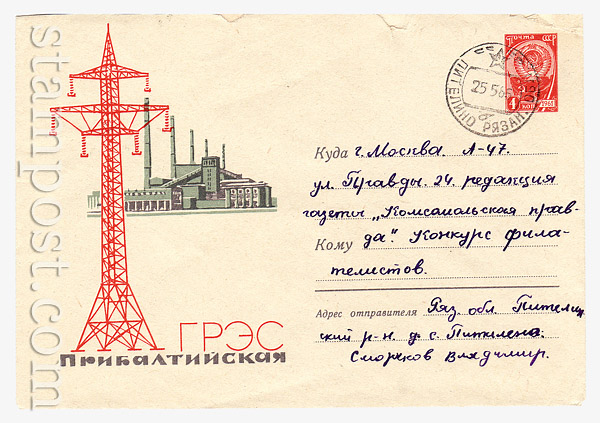 stampost.com
ПОЧТА СССР
4 КОП
25 5 65
ПИТЕЛИНО РЯЗАН
Куда г. Москва. А-47.
ул. Правды. 24. редакция
газеты „Комсомольская прав-
Кому да". Конкурс фила-
телистов.
Адрес отправителя Ряз. обл. Пителин
ский р-н д. с. Питилена.
Сморжов Владимир.
ГРЭС
Прибалтийская